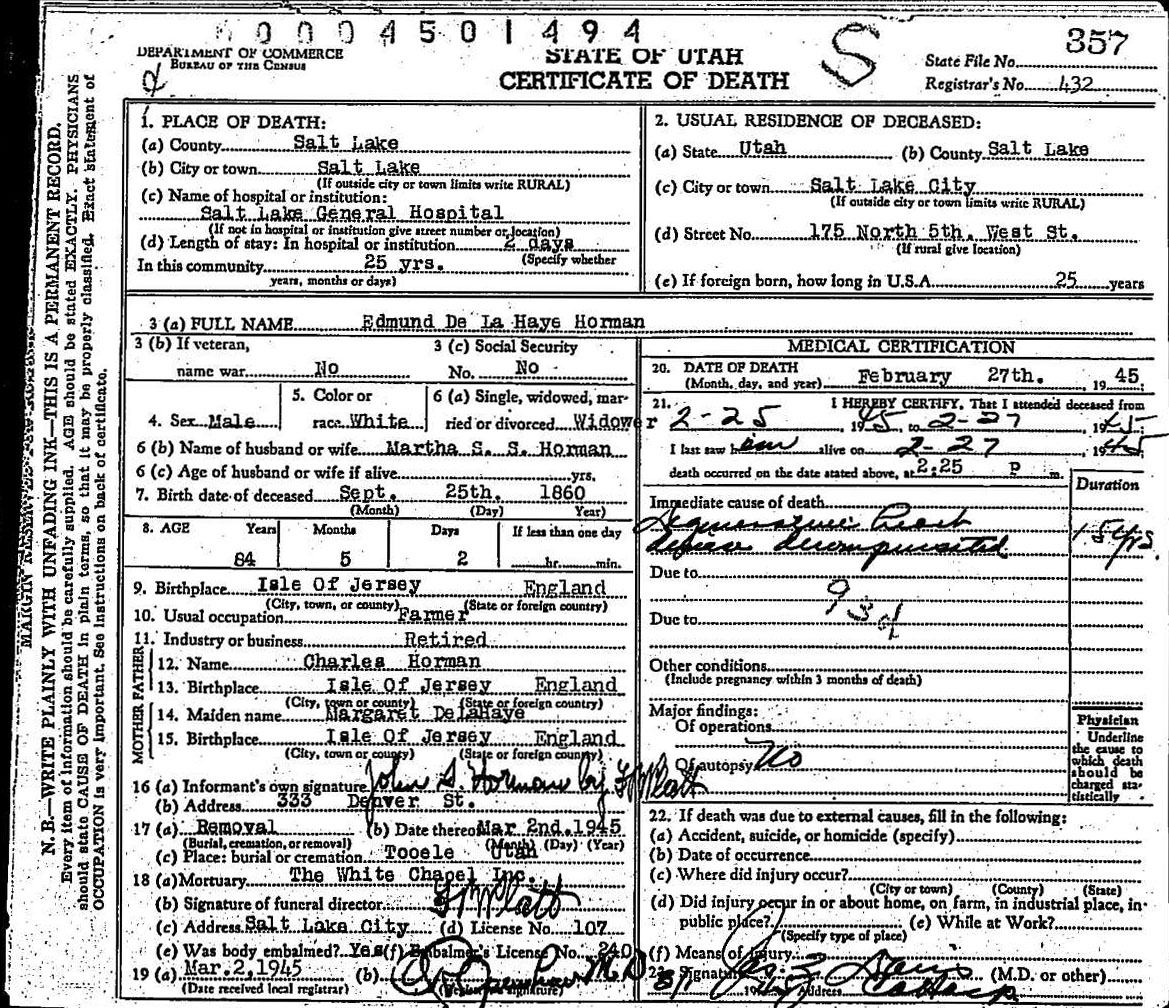 0 0 0 4 5 0 1 4 9 4
DEPARTMENT OF COMMERCE
BUREAU OF THE CENSUS
STATE OF UTAH
CERTIFICATE OF DEATH
S
State File No. 357
Registrar's No. 432
MARGIN RESERVED FOR
N. B.—WRITE PLAINLY WITH UNFADING INK—THIS IS A PERMANENT RECORD.
Every item of information should be carefully supplied. AGE should be stated EXACTLY. PHYSICIANS
should state CAUSE OF DEATH in plain terms, so that it may be properly classified. Exact statement of
OCCUPATION is very important. See instructions on back of certificate.
1. PLACE OF DEATH:
(a) County Salt Lake
(b) City or town Salt Lake
(If outside city or town limits write RURAL)
(c) Name of hospital or institution:
Salt Lake General Hospital
(If not in hospital or institution give street number or location)
(d) Length of stay: In hospital or institution 2 days
(Specify whether
In this community 25 yrs.
years, months or days)
2. USUAL RESIDENCE OF DECEASED:
(a) State Utah (b) County Salt Lake
(c) City or town Salt Lake City
(If outside city or town limits write RURAL)
(d) Street No. 175 North 5th. West St.
(If rural give location)
(e) If foreign born, how long in U.S.A. 25 years
3 (a) FULL NAME Edmund De La Haye Horman
3 (b) If veteran,
name war No
3 (c) Social Security
No. No
4. Sex Male
5. Color or
race White
6 (a) Single, widowed, mar-
ried or divorced Widower
6 (b) Name of husband or wife Martha S. S. Horman
6 (c) Age of husband or wife if alive yrs.
7. Birth date of deceased Sept. 25th. 1860
(Month) (Day) Year)
8. AGE Years Months Days If less than one day
84 5 2 hr. min.
9. Birthplace Isle Of Jersey England
(City, town, or county) (State or foreign country)
10. Usual occupation Farmer
11. Industry or business Retired
FATHER
12. Name Charles Horman
13. Birthplace Isle Of Jersey England
(City, town or county) (State or foreign country)
MOTHER
14. Maiden name Margaret DeLaHaye
15. Birthplace Isle Of Jersey England
(City, town or county) (State or foreign country)
16 (a) Informant's own signature John S. Horman by
(b) Address 333 Denver St.
17 (a) Removal (b) Date thereof Mar 2nd. 1945
(Burial, cremation, or removal) (Month) (Day) (Year)
(c) Place: burial or cremation Tooele Utah
18 (a) Mortuary The White Chapel Inc.
(b) Signature of funeral director
(c) Address Salt Lake City (d) License No. 107
(e) Was body embalmed? Yes (f) Embalmer's License No. 240
19 (a) Mar. 2, 1945 (b) M D
(Date received local registrar) (Registrar's signature)
MEDICAL CERTIFICATION
20. DATE OF DEATH
(Month, day, and year) February 27th. , 1945.
21. I HEREBY CERTIFY, That I attended deceased from
2-25 , 1945, to 2-27 , 1945
I last saw him alive on 2-27 , 1945
death occurred on the date stated above, at 2:25 P m.
Duration
Immediate cause of death
Degenerative heart 15 yrs.
disease decompensated
Due to
93d
Due to
Other conditions
(Include pregnancy within 3 months of death)
Major findings:
Of operations
Of autopsy No
Physician
Underline
the cause to
which death
should be
charged sta-
tistically
22. If death was due to external causes, fill in the following:
(a) Accident, suicide, or homicide (specify)
(b) Date of occurrence
(c) Where did injury occur?
(City or town) (County) (State)
(d) Did injury occur in or about home, on farm, in industrial place, in
public place? (e) While at Work?
(Specify type of place)
(f) Means of Injury
23. Signature Davis (M.D. or other)
19 Address